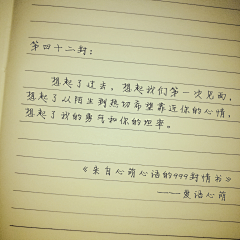 第四十二封：
想起了过去，想起我们第一次见面，
想起了从陌生到热切希望靠近你的心情，
想起了我的勇气和你的坦率。
《来自心萌心语的999封情书》
——爱语心萌